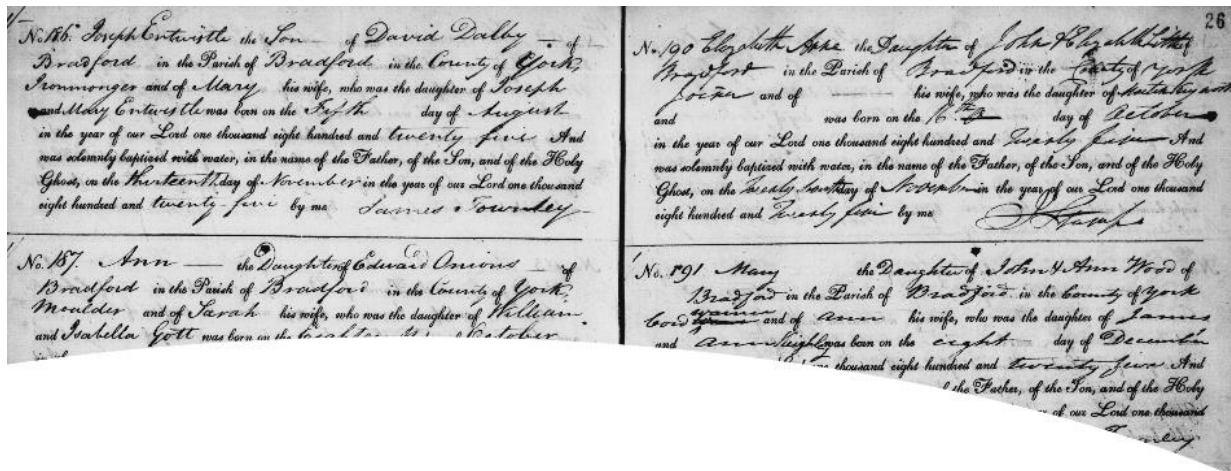 26
No. 186. Joseph Entwistle the Son of David Dalby of
Bradford in the Parish of Bradford in the County of York,
Ironmonger and of Mary his wife, who was the daughter of Joseph
and Mary Entwistle was born on the Fifth day of August
in the year of our Lord one thousand eight hundred and twenty five And
was solemnly baptised with water, in the name of the Father, of the Son, and of the Holy
Ghost, on the thirteenth day of November in the year of our Lord one thousand
eight hundred and twenty-five by me James Townley
No. 187. Ann the Daughter of Edward Onions of
Bradford in the Parish of Bradford in the County of York,
Moulder and of Sarah his wife, who was the daughter of William
and Isabella Gott was born on the October
No. 190 Elizabeth Anne the Daughter of John & Elizabeth
Bradford in the Parish of Bradford in the County of York
Joiner and of his wife, who was the daughter of
and was born on the 16th day of October
in the year of our Lord one thousand eight hundred and Twenty five And
was solemnly baptised with water, in the name of the Father, of the Son, and of the Holy
Ghost, on the day of November in the year of our Lord one thousand
eight hundred and Twenty five by me
No. 191 Mary the Daughter of John & Ann Wood of
Bradford in the Parish of Bradford in the County of York
Cord and of Ann his wife, who was the daughter of James
and Ann was born on the eight day of December
thousand eight hundred and twenty five And
of the Father, of the Son, and of the Holy
of our Lord one thousand